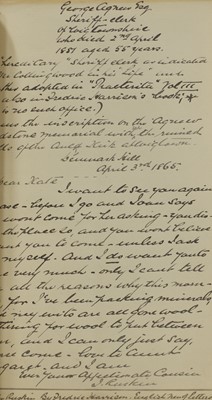 George Agnew Esq
Sheriff-clerk
of Wigtownshire
who died 2nd April
1851 aged 55 years.
Hereditary "Sheriff clerk as indicated
Collingwood in his "Life"
adopted in "Praeterita" Vol III
also in Frederic Harrison's book,
no such office.)
the inscription on the Agnew
memorial within the ruined
of the Auld Kirk
Denmark Hill
April 3rd 1865.
Dear Kate
I want to see you again
before I go and Joan says
you wont come for her asking - you dis-
the place so, and you wont believe
want you to come - unless I ask
myself. And I do want you to
very much - only I can't tell
all the reasons why this morn-
for I've been packing minerals
my wits are all gone wool-
for wool to put between
and I can only just say,
come - love to Aunt
Margaret. and I am
Ever your affectionate Cousin
J. Ruskin
Ruskin By Frederic Harrison. English Men of Letters